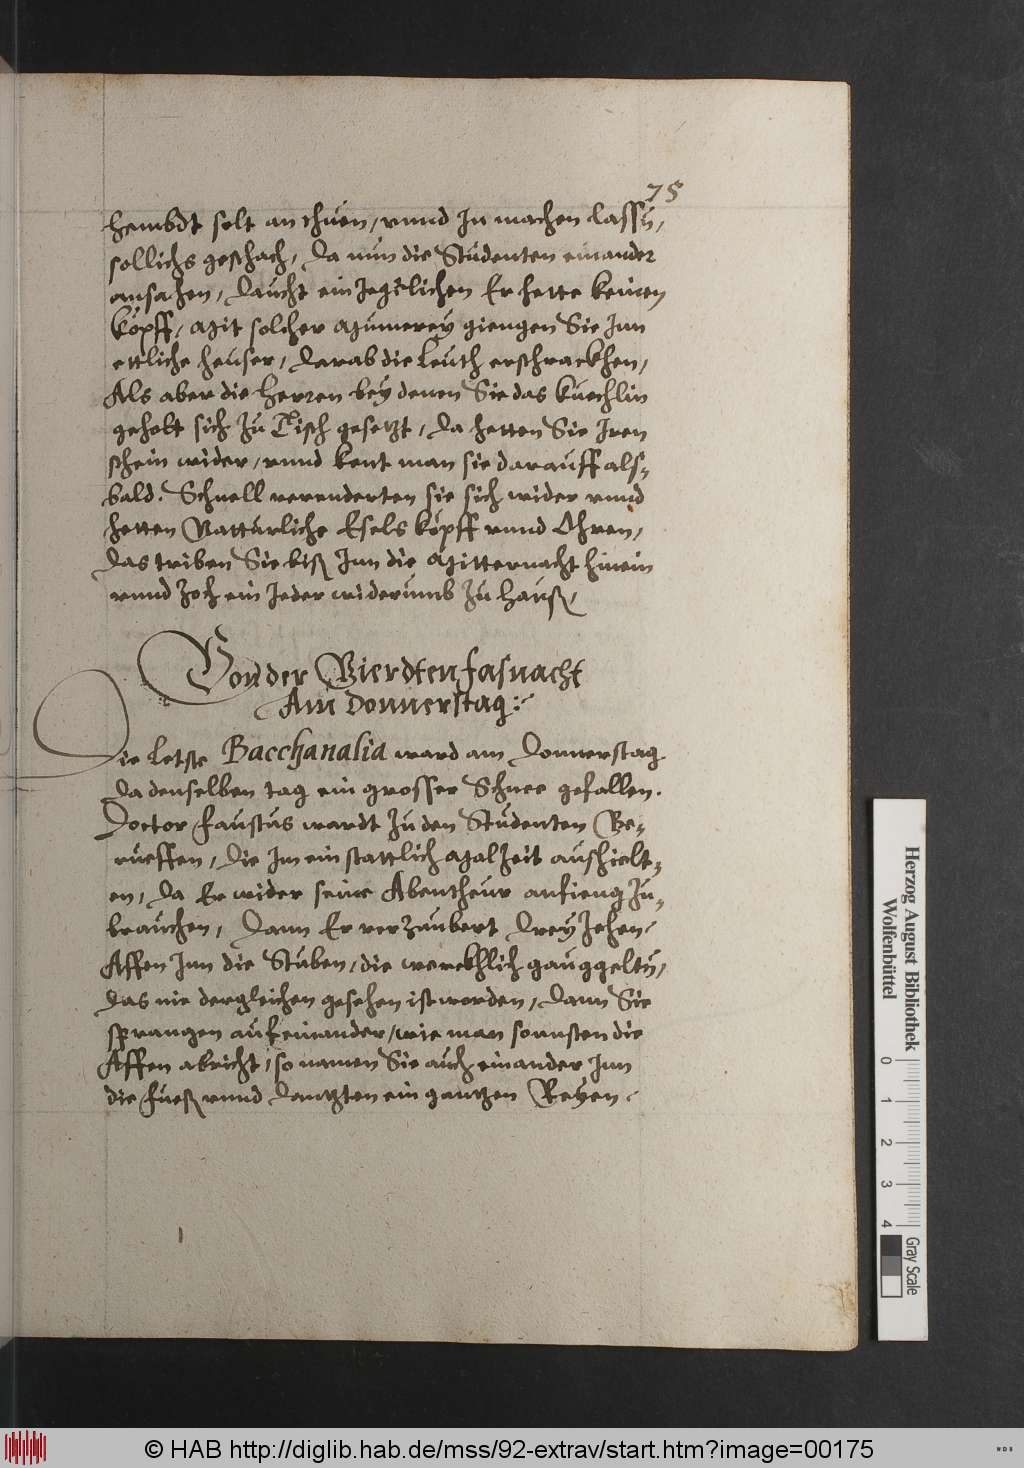 75
hembdt solt an thuen, vnnd In machen lassen,
sollichs geschach, Da nun die Studenten einander
ansahen, Daucht ein Jegclichen Er hette keinen
Kopff, Mit solcher Mumerey giengen Sie Inn
ettliche heuser, Darab die Leuth erschrackhen,
Als aber die Herren bey denen Sie das Kuechlin
geholt sich zu Tisch gesetzt, Da hetten Sie Iren
schein wider, vnnd kent man sie darauff als-
bald. Schnell verenderten sie sich wider vnnd
hetten Natturliche Esels köpff vnnd Ohren,
Das triben Sie biß Inn die Mitternacht hinein
vnnd Zoch ein Jeder widerumb zu Hauß,
Von der Vierdten fasnacht
Am Donnerstag:
Die letste Bacchanalia ward am Donnerstag
Da denselben tag ein grosser Schnee gefallen.
Doctor Faustus wardt zu den Studenten Be-
rueffen, Die Im ein stattlich Malzeit aufhielt-
en, Da Er wider seine Abentheur anfieng zu-
brauchen, Dann Er verzaubert Dreyzehen
Affen Inn die Stuben, die werckhlich gauggelten,
Das nie dergleichen gesehen ist worden, Dann Sie
sprangen auf einander, wie man sonnsten die
Affen abricht, so namen Sie auch einander Inn
die Fueß vnnd Dantzten ein gantzen Reyen
Herzog August Bibliothek
Wolfenbüttel
0 1 2 3 4
Gray Scale
© HAB http://diglib.hab.de/mss/92-extrav/start.htm?image=00175
WDB